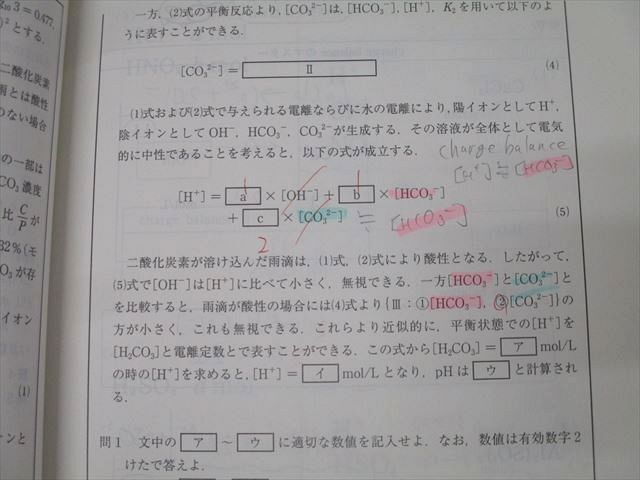 ₁₀3＝0.477.
)² とする.
二酸化炭素
雨とは酸性
のない場合
の一部は
CO₃ 濃度
比 C/P が
32%（モ
O₃ が存
イオン
(1)
ンと
一方，(2)式の平衡反応より，[CO₃²⁻]は，[HCO₃⁻]，[H⁺]，K₂を用いて以下のよ
うに表すことができる．
[CO₃²⁻]＝ Ⅱ (4)
(1)式および(2)式で与えられる電離ならびに水の電離により，陽イオンとしてH⁺，
陰イオンとしてOH⁻，HCO₃⁻，CO₃²⁻が生成する．その溶液が全体として電気
的に中性であることを考えると，以下の式が成立する．
charge balance
[H⁺]≒[HCO₃⁻]
1 1
[H⁺]＝ a ×[OH⁻]＋ b ×[HCO₃⁻]
＋ c ×[CO₃²⁻] ≒ [HCO₃⁻] (5)
2
二酸化炭素が溶け込んだ雨滴は，(1)式，(2)式により酸性となる．したがって，
(5)式で[OH⁻]は[H⁺]に比べて小さく，無視できる．一方[HCO₃⁻]と[CO₃²⁻]と
を比較すると，雨滴が酸性の場合には(4)式より{Ⅲ：①[HCO₃⁻]，②[CO₃²⁻]}の
方が小さく，これも無視できる．これらより近似的に，平衡状態での[H⁺]を
[H₂CO₃]と電離定数とで表すことができる．この式から[H₂CO₃]＝ ア mol/L
の時の[H⁺]を求めると，[H⁺]＝ イ mol/Lとなり，pHは ウ と計算され
る．
問1 文中の ア ～ ウ に適切な数値を記入せよ．なお，数値は有効数字2
けたで答えよ．